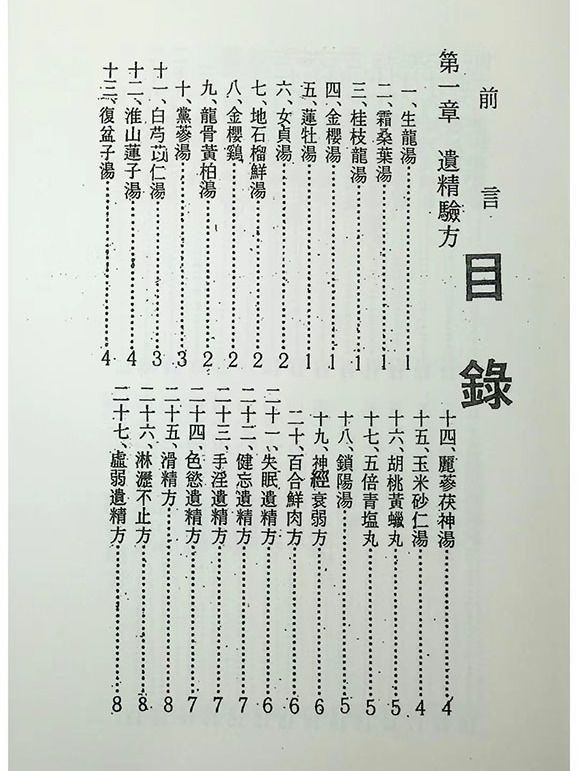 目錄
前言
第一章 遺精驗方
一、生龍湯……1
二、霜桑葉湯……1
三、桂枝龍湯……1
四、金櫻湯……1
五、蓮牡湯……1
六、女貞湯……2
七、地石榴鮮湯……2
八、金櫻鷄……2
九、龍骨黃柏湯……2
十、黨蔘湯……3
十一、白芍苡仁湯……3
十二、淮山蓮子湯……4
十三、復盆子湯……4
十四、麗蔘茯神湯……4
十五、玉米砂仁湯……4
十六、胡桃黃蠟丸……5
十七、五倍青塩丸……5
十八、鎖陽湯……5
十九、神經衰弱方……6
二十、百合鮮肉方……6
二十一、失眠遺精方……6
二十二、健忘遺精方……7
二十三、手淫遺精方……7
二十四、色慾遺精方……7
二十五、滑精方……8
二十六、淋瀝不止方……8
二十七、虛弱遺精方……8